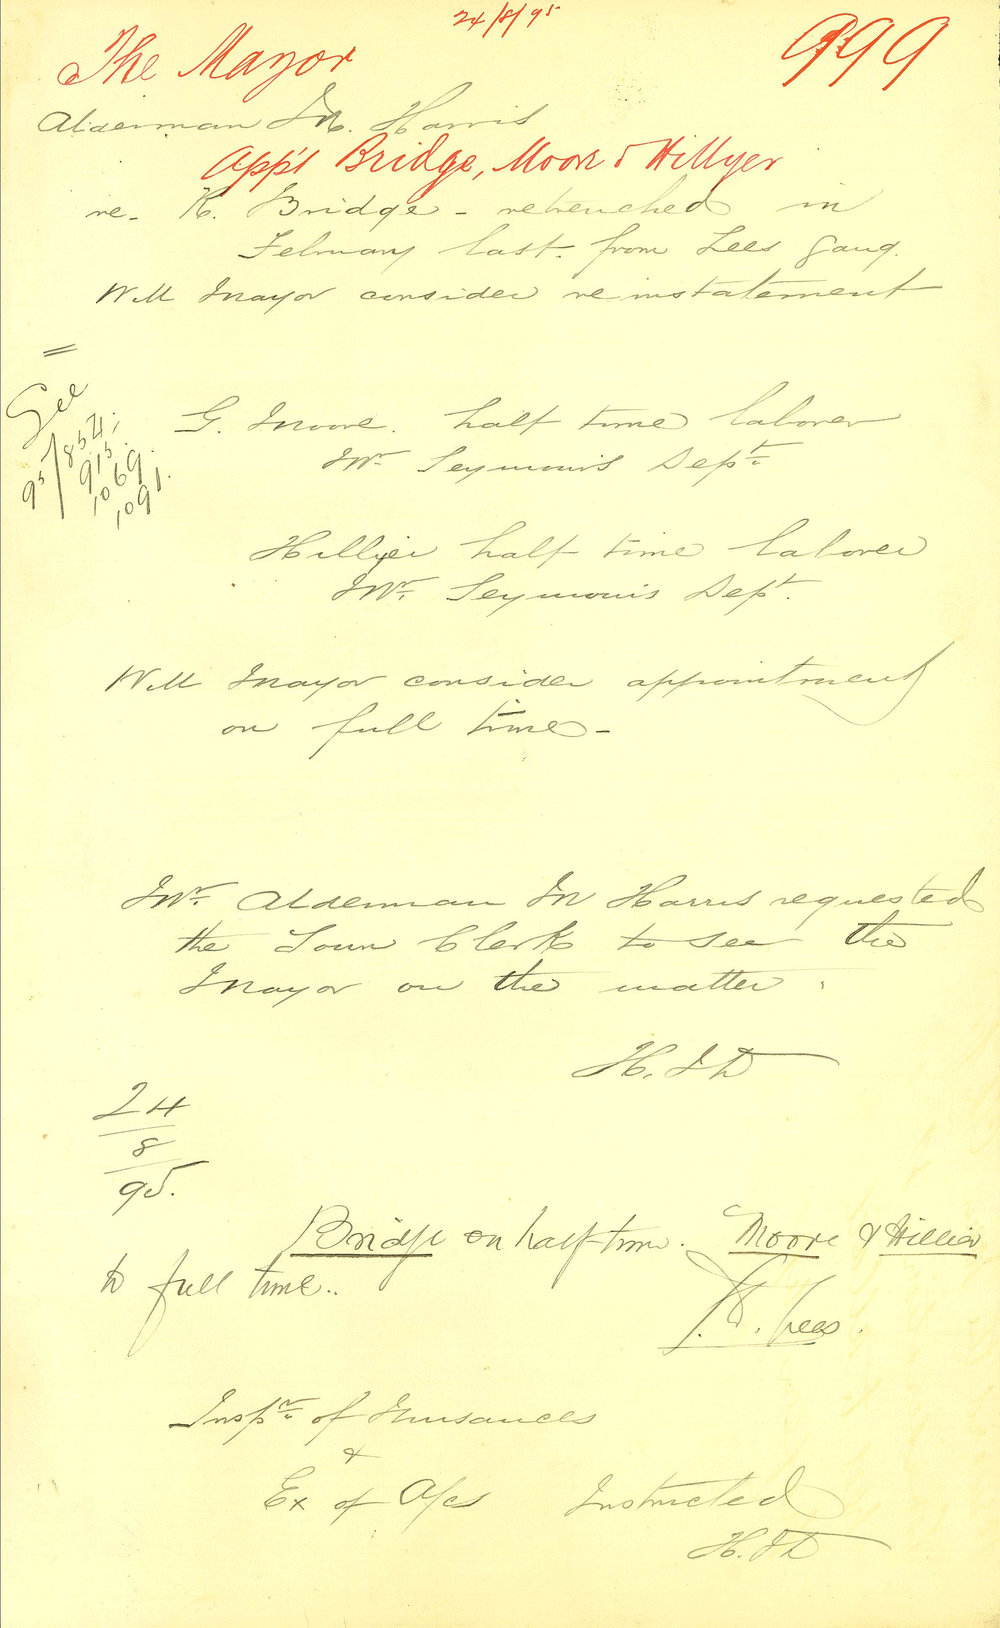 24/8/95
999
The Mayor
Alderman M. Harris
App't Bridge, Moore & Hillyer
re- K. Bridge - retrenched in
February last. from Lees gang.
Will Mayor consider reinstatement
=
See
95/854;
915
1069.
1091.
G. Moore. half time laborer
Mr. Seymour's Dept.
Hillyer half time laborer
Mr. Seymour's Dept.
Will Mayor consider appointment
on full time -
Mr. Alderman M Harris requested
the Town Clerk to see the
Mayor on the matter.
24
8
95.
Bridge on half-time. Moore & Hillier
to full time..
Lees.
Inspr. of Nuisances
&
Ex of A/cs Instructed